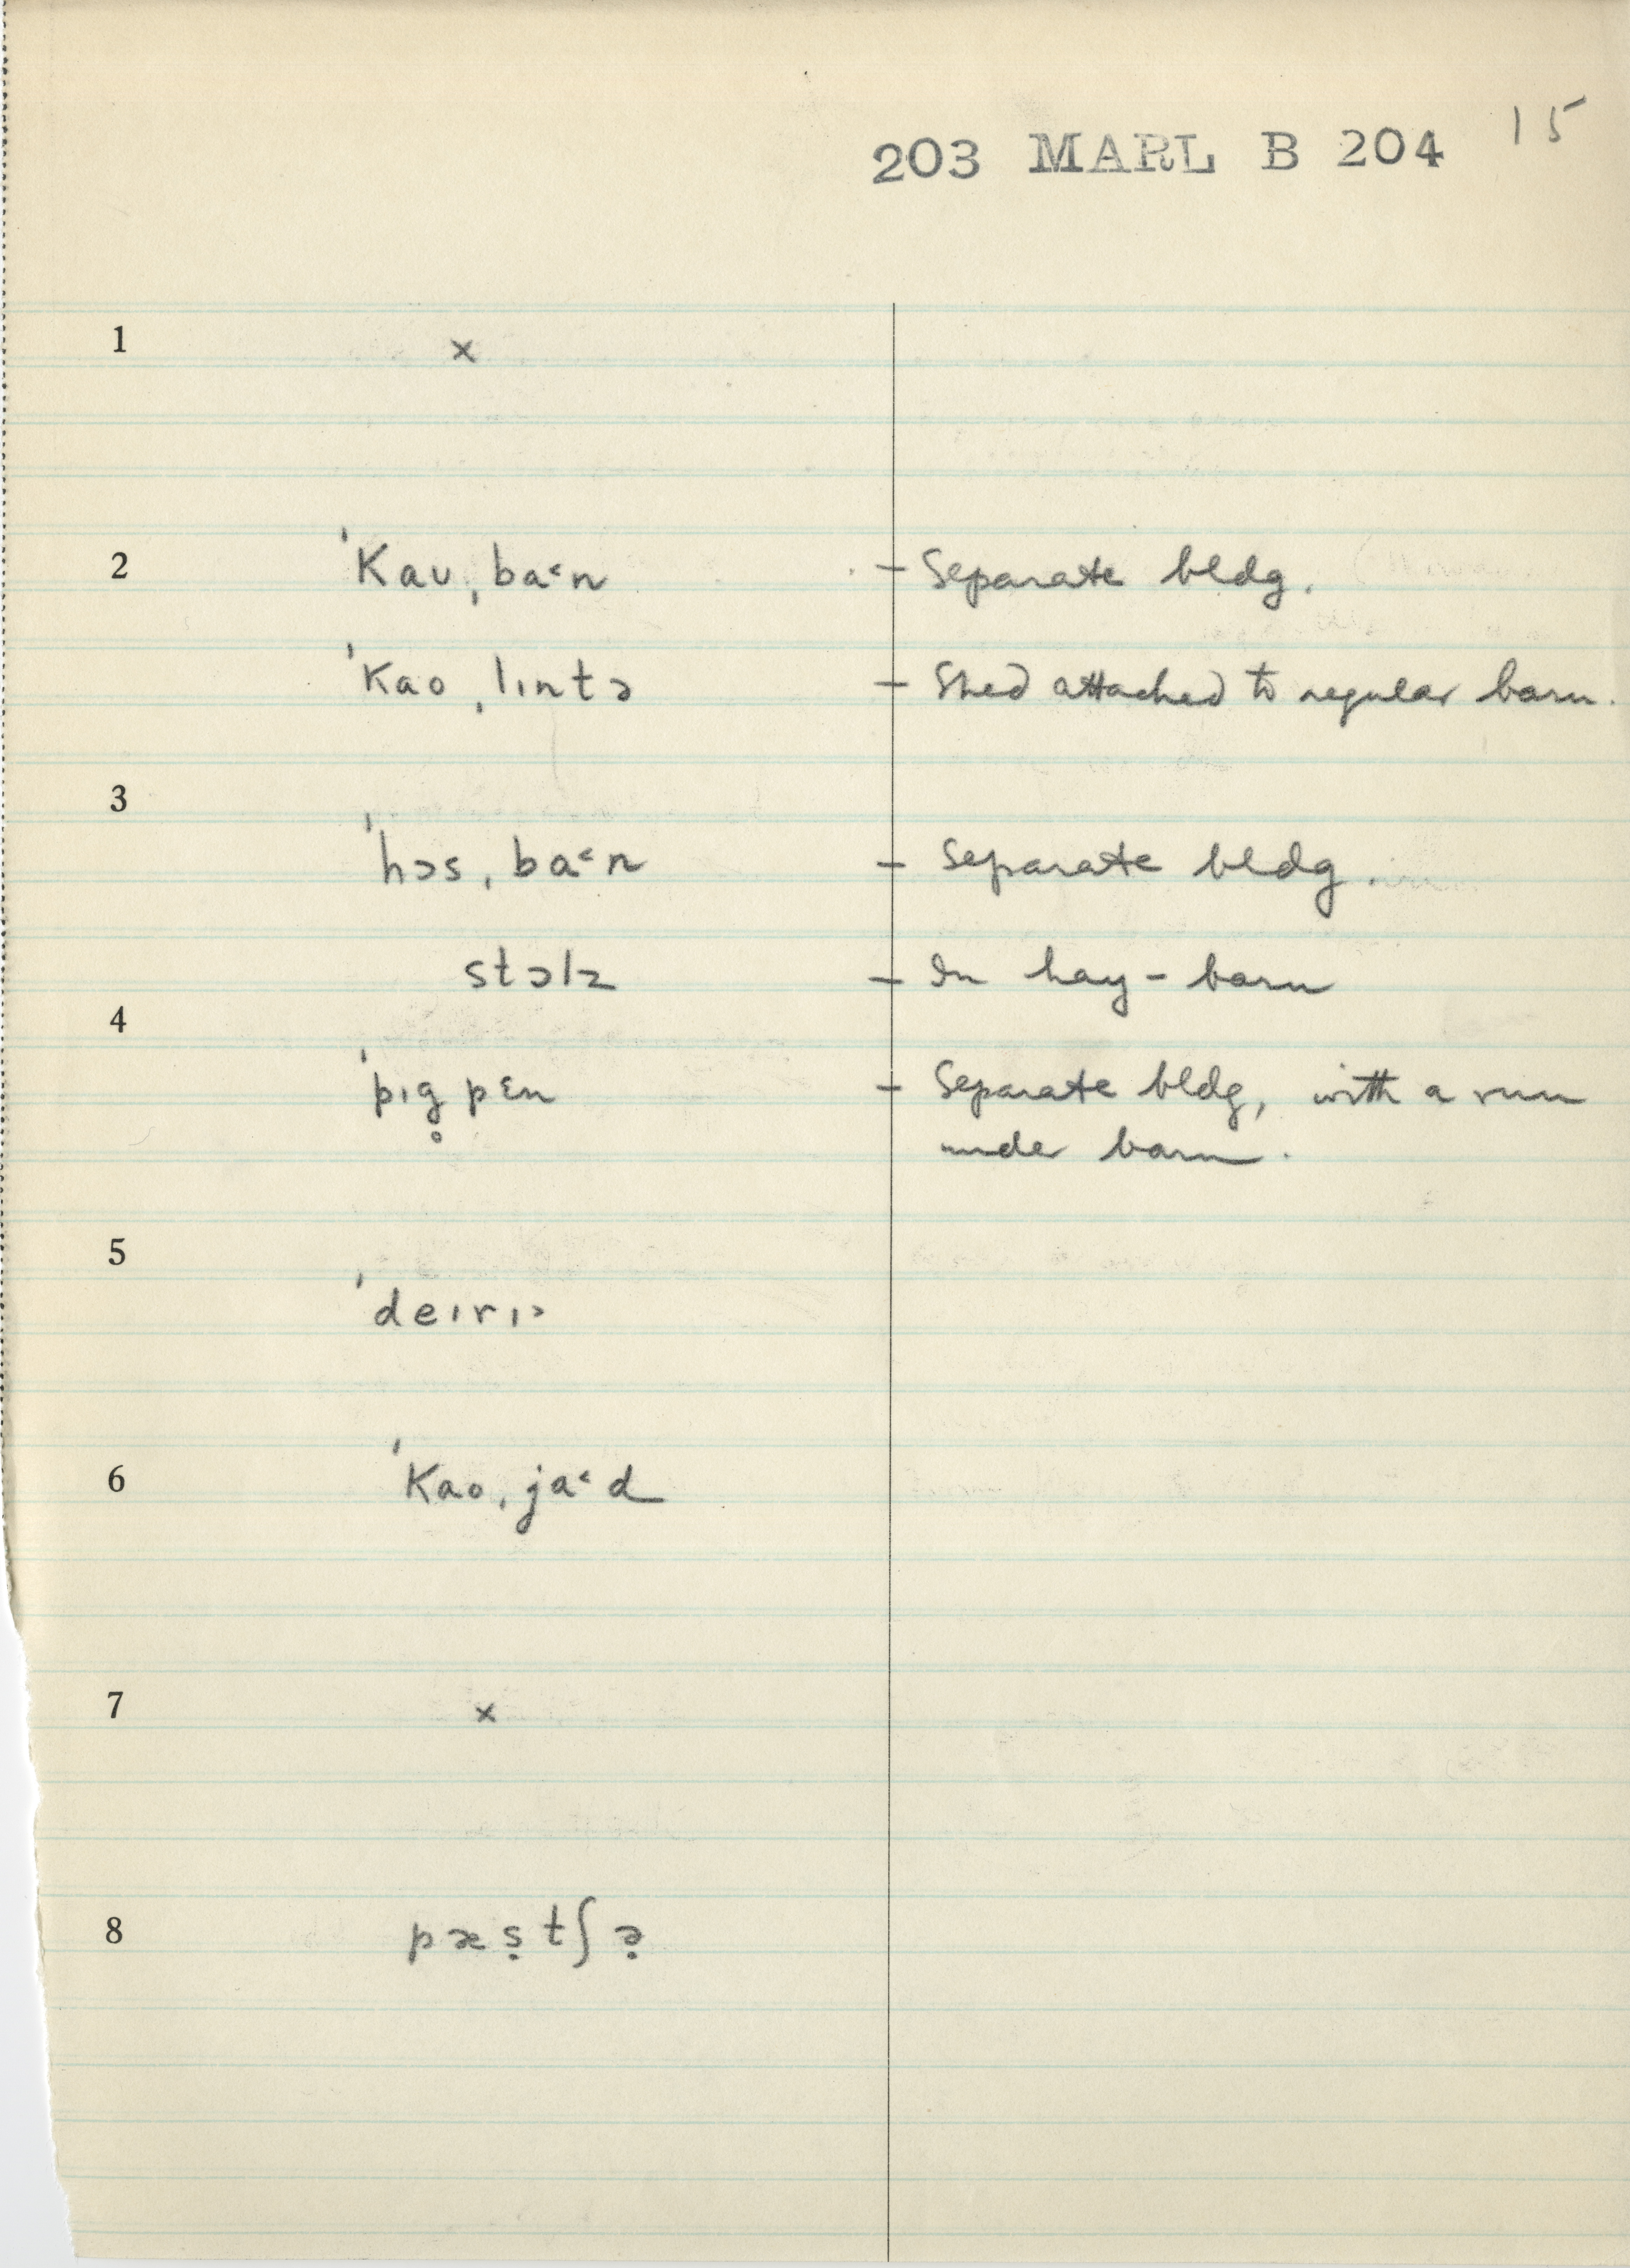 203 MARL B 204 15
1 ×
2 ˈkaʊˌba˂n – Separate bldg.
ˈkaoˌlɪntə – Shed attached to regular barn.
3
ˈhɔsˌba˂n – Separate bldg.
stɔlz – In hay-barn
4
ˈpɪg̥pɛn – Separate bldg, with a run
under barn.
5
ˈdeɪrɪ˃
6 ˈkaoˌja˂d
7 ×
8 pæṣtʃə̣